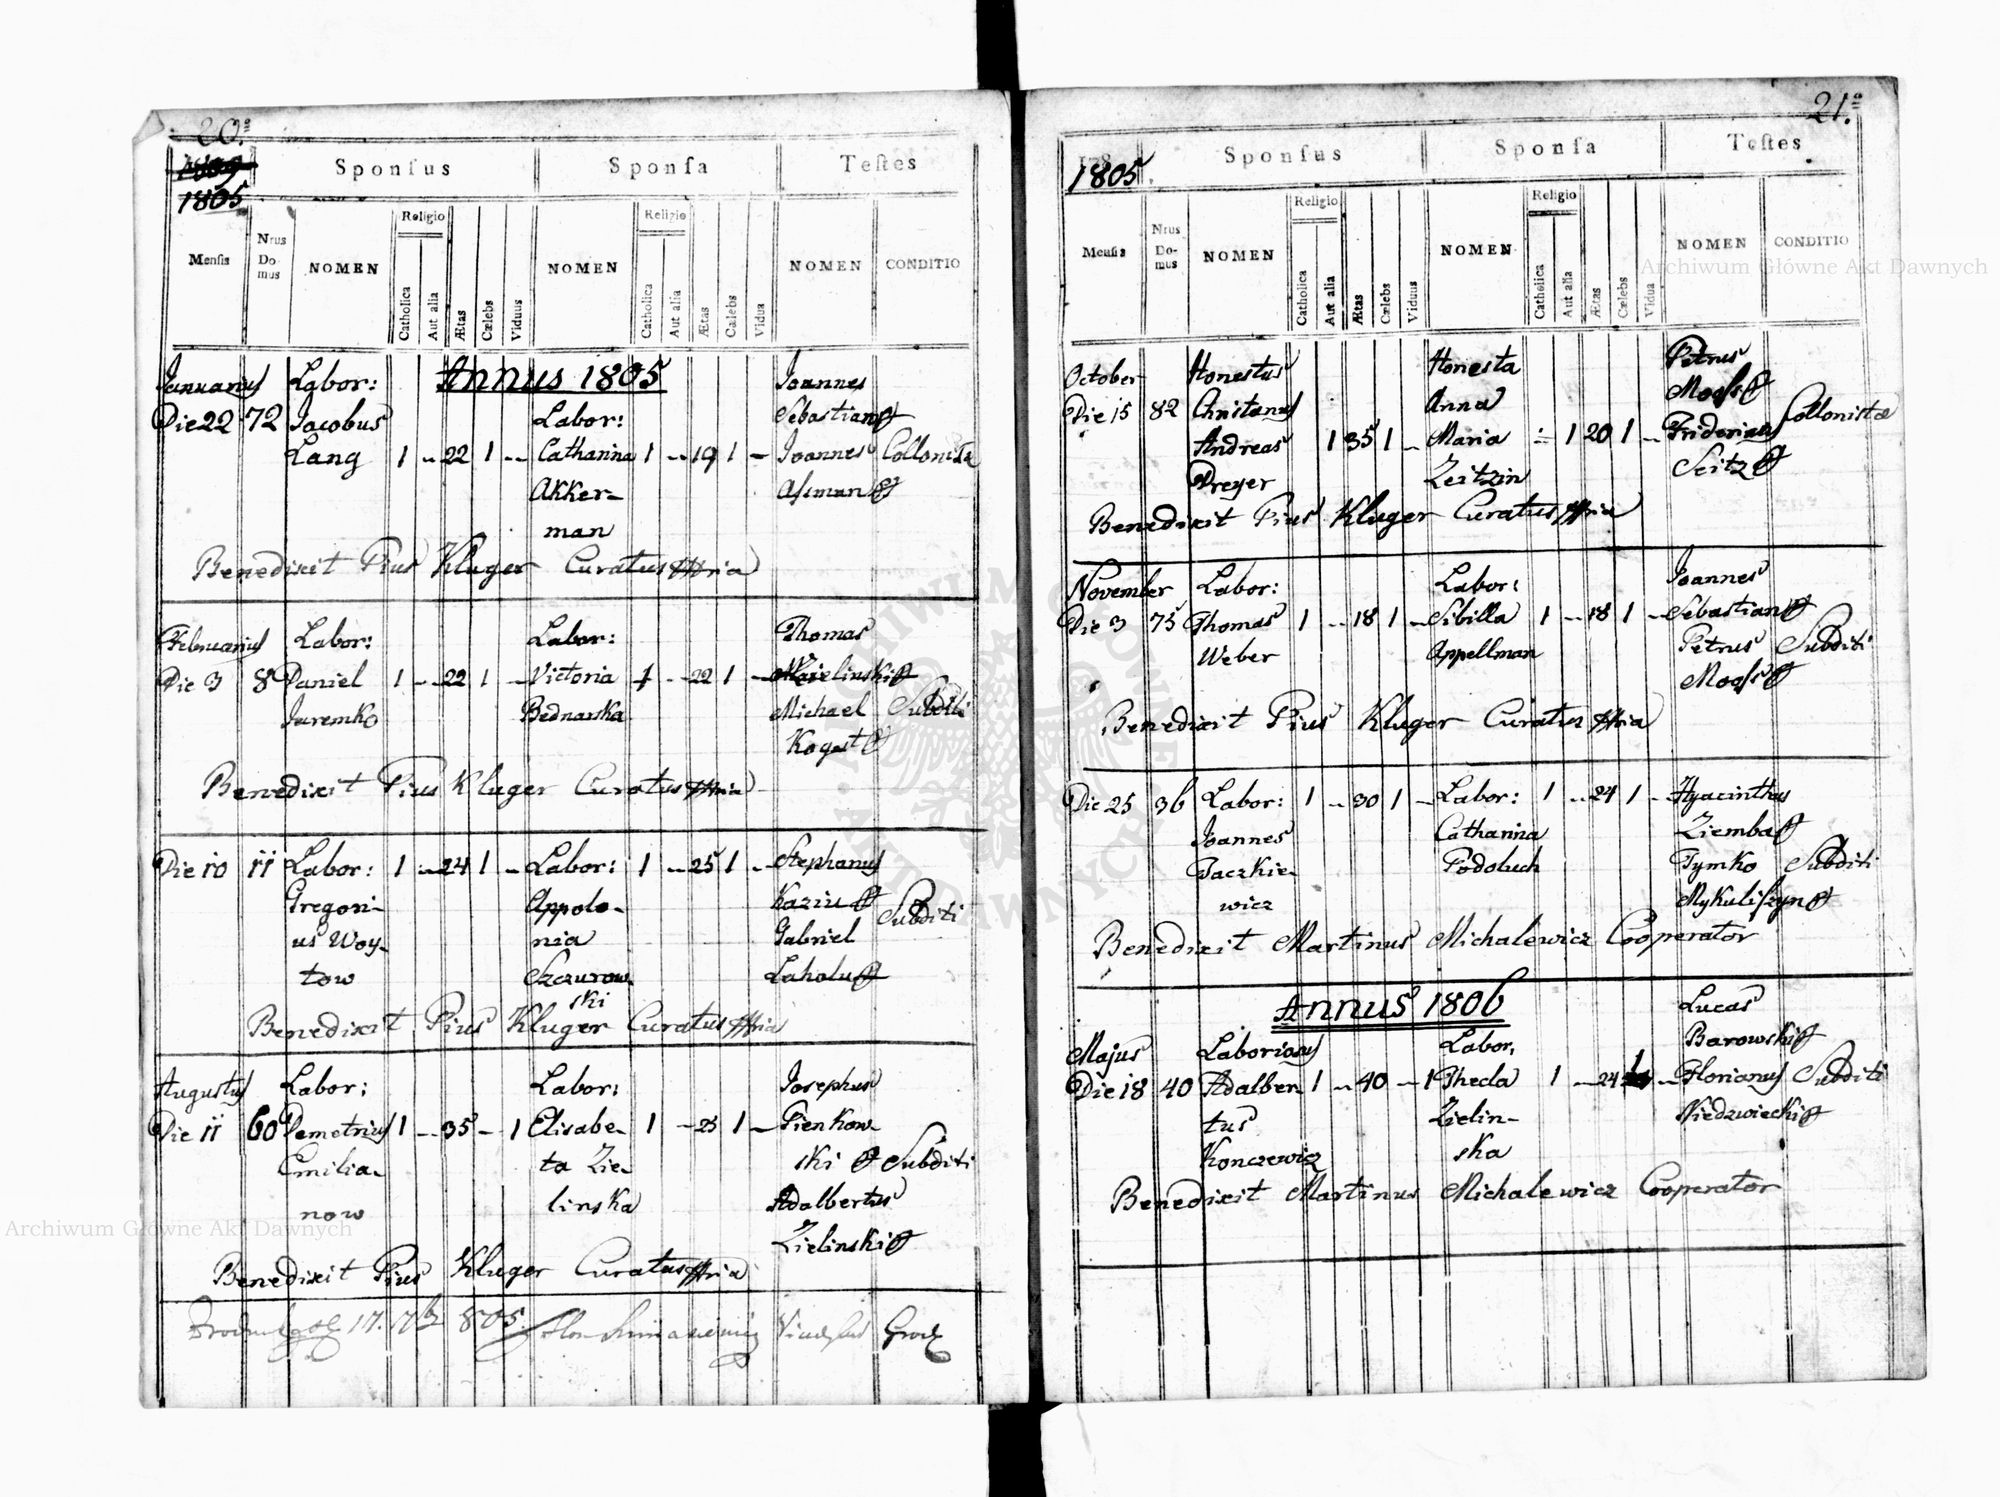 20.
1805
Sponſus Sponſa Teſtes
Menſis
Nrus Domus
NOMEN
Religio
Catholica
Aut alia
Ætas
Cælebs
Viduus
NOMEN
Religio
Catholica
Aut alia
Ætas
Cælebs
Vidua
NOMEN
CONDITIO
Annus 1805
Januarius Labor: Joannes
Die 22 72 Jacobus Labor: Sebastian
Lang 1 22 1 Catharina 1 19 1 Joannes Collonistæ
Akker- Assman
man
Benedixit Pius Kluger Curatus
Februarius Labor: Labor: Thomas
Die 3 8 Daniel 1 22 1 Victoria 1 22 1 Zielinski
Jaremko Bednarska Michael Subditi
Kogut
Benedixit Pius Kluger Curatus
Die 10 11 Labor: 1 24 1 Labor: 1 25 1 Stephanus
Gregori- Appolo- Kaziu
us Woy- nia Gabriel Subditi
tow Szczurow-
ski
Benedixit Pius Kluger Curatus
Augustus Labor: Labor: Josephus
Die 11 60 Demetrius 1 35 1 Elisabe- 1 25 1 Pienkow-
Emilia- ta Zie- ski Subditi
now linska Adalbertus
Zielinski
Benedixit Pius Kluger Curatus
17. 805
21.
1805
Sponſus Sponſa Teſtes
Menſis
Nrus Domus
NOMEN
Religio
Catholica
Aut alia
Ætas
Cælebs
Viduus
NOMEN
Religio
Catholica
Aut alia
Ætas
Cælebs
Vidua
NOMEN
CONDITIO
October Honestus Honesta Petrus
Die 15 82 Christianus Anna Mooss
Andreas 1 35 1 Maria 1 20 1 Fridericus Collonistæ
Dreyer Zeitzin Seitz
Benedixit Pius Kluger Curatus
November Labor: Labor: Joannes
Die 3 75 Thomas 1 18 1 Sibilla 1 18 1 Sebastian
Weber Appellman Petrus Subditi
Mooss
Benedixit Pius Kluger Curatus
Die 25 36 Labor: 1 30 1 Labor: 1 24 1 Hyacinthus
Joannes Catharina Ziemba
Taczkie- Podoluch Tymko Subditi
wicz Mykuliszyn
Benedixit Martinus Michalewicz Cooperator
Annus 1806 Lucas
Majus Laboriosus Labor. Barowski
Die 18 40 Adalber- 1 40 1 Thecla 1 24 Florianus Subditi
tus Zielin- Niedzwiecki
Konczewicz ska
Benedixit Martinus Michalewicz Cooperator
Archiwum Główne Akt Dawnych
Archiwum Główne Akt Dawnych
ARCHIWUM GŁÓWNE AKT DAWNYCH